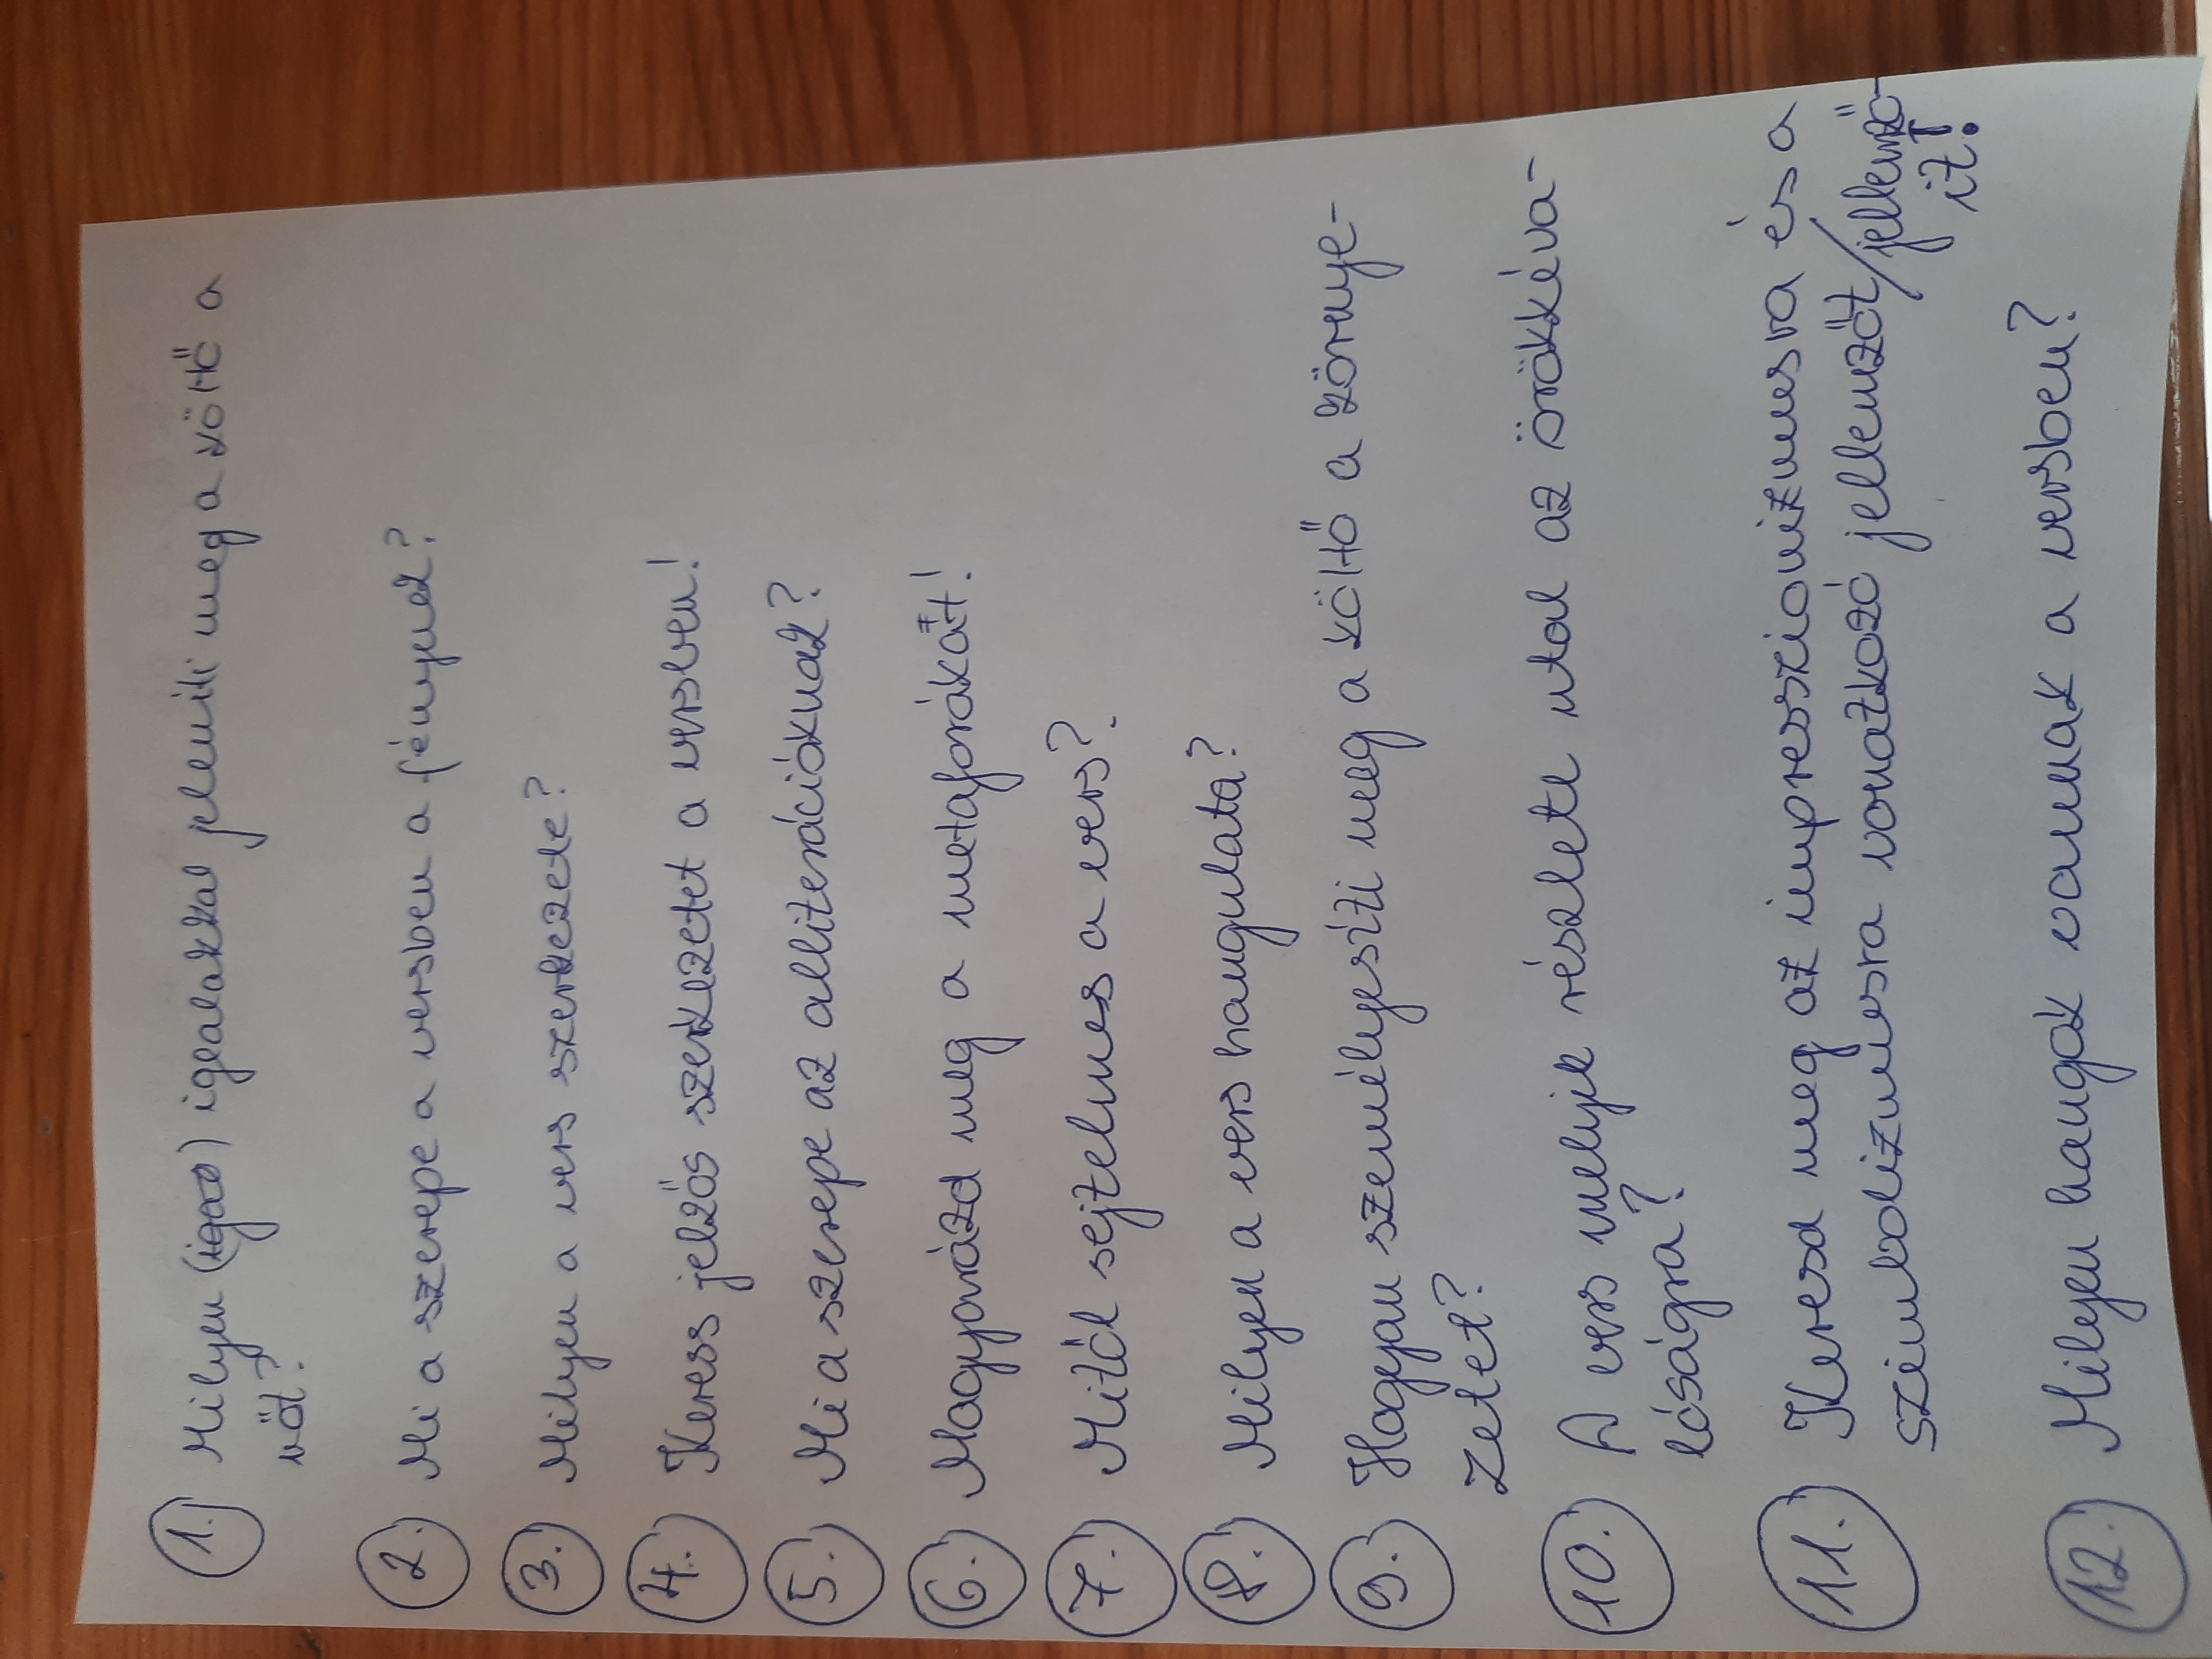 1. Milyen (igao) igealakkal jeleníti meg a költő a
nőt?
2. Mi a szerepe a versben a fénynek?
3. Milyen a vers szerkezete?
4. Keress jelzős szerkezetet a versben!
5. Mi a szerepe az alliterációknak?
6. Magyarázd meg a metaforákat!
7. Mitől sejtelmes a vers?
8. Milyen a vers hangulata?
9. Hogyan személyesíti meg a költő a környe-
zetet?
10. A vers melyik részlete utal az örökkéva-
lóságra?
11. Keresd meg az impresszionizmusra és a
szimbolizmusra vonatkozó jellemzőt/jellemző-
it!
12. Milyen hangok vannak a versben?